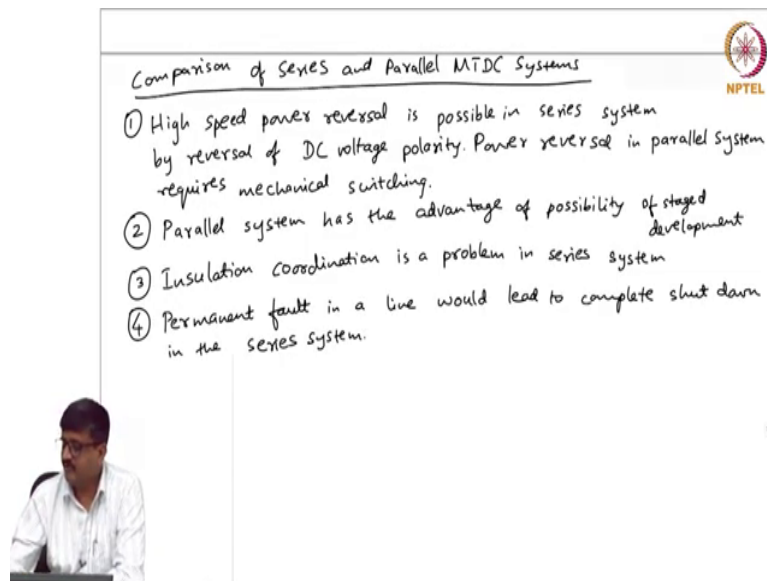 Comparison of Series and Parallel MTDC Systems
NPTEL
① High speed power reversal is possible in series system
by reversal of DC voltage polarity. Power reversal in parallel system
requires mechanical switching.
② Parallel system has the advantage of possibility of staged
development
③ Insulation coordination is a problem in series system
④ Permanent fault in a line would lead to complete shut down
in the series system.